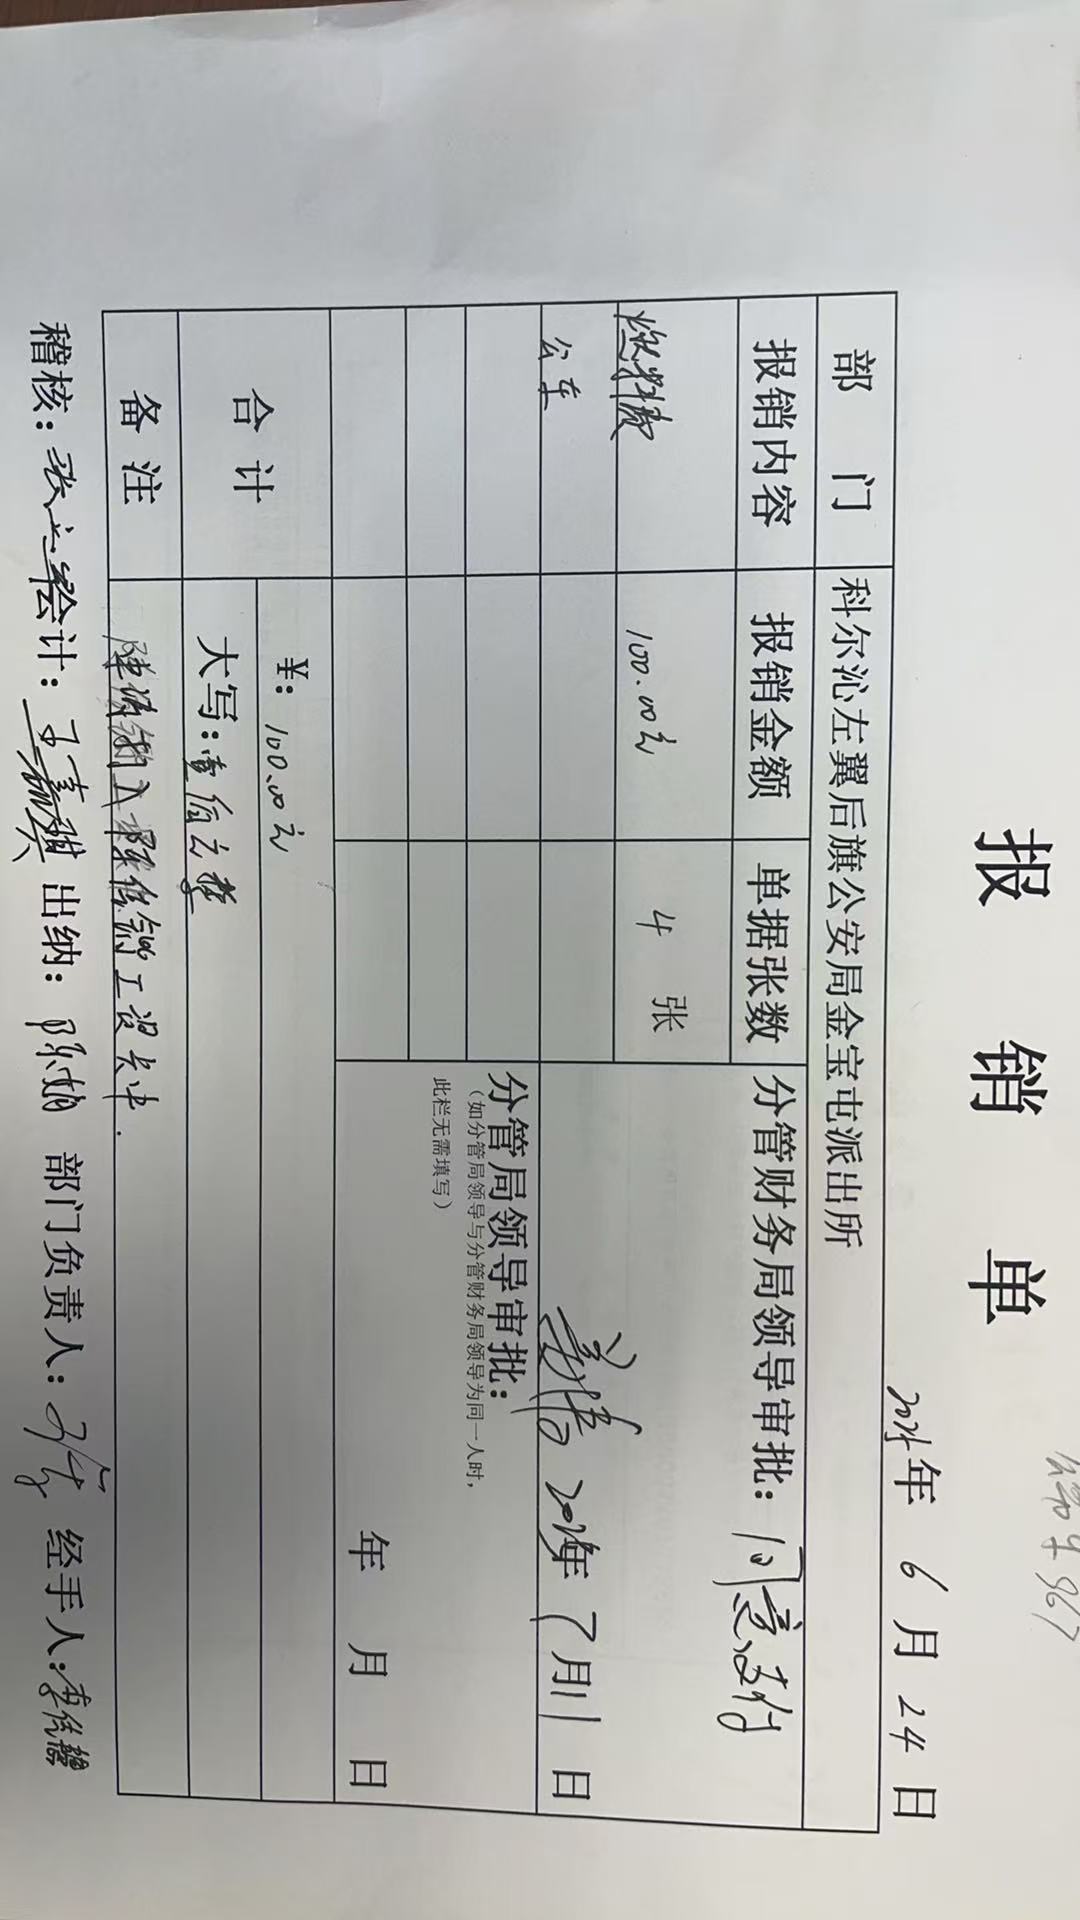 报 销 单
2025年 6月 24日
部 门 科尔沁左翼后旗公安局金宝屯派出所
报销内容 报销金额 单据张数 分管财务局领导审批：同意支付
燃料费 100.00元 4 张
公车
2025年 7月11日
分管局领导审批：
（如分管局领导与分管财务局领导为同一人时，
此栏无需填写）
年 月 日
合 计 ¥：100.00元
大写：壹佰元整
备 注 工资卡中.
稽核： 会计： 出纳： 部门负责人： 经手人：